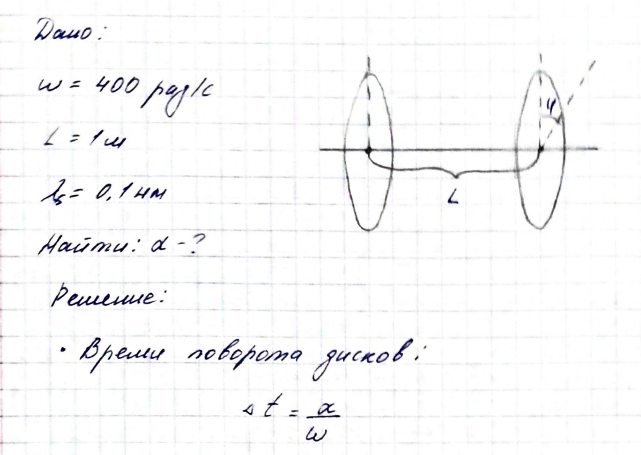 Дано:
ω = 400 рад/с
L = 1 м
λ₅ = 0,1 нм
φ
L
Найти: α - ?
Решение:
· Время поворота дисков:
Δt = α/ω